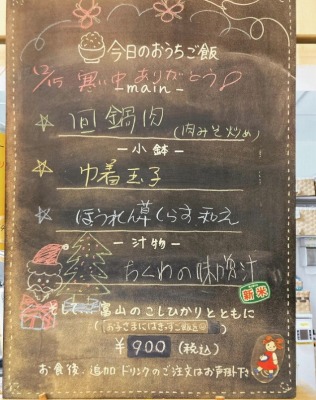 今日のおうちご飯
寒い中ありがとう
-main-
回鍋肉
(肉みそ炒め)
-小鉢-
巾着玉子
ほうれん草くらす和え
-汁物-
ちくわの味噌汁
新米
そして…富山のこしひかりとともに
¥900(税込)
お食後、追加ドリンクのご注文はお声掛け下さい